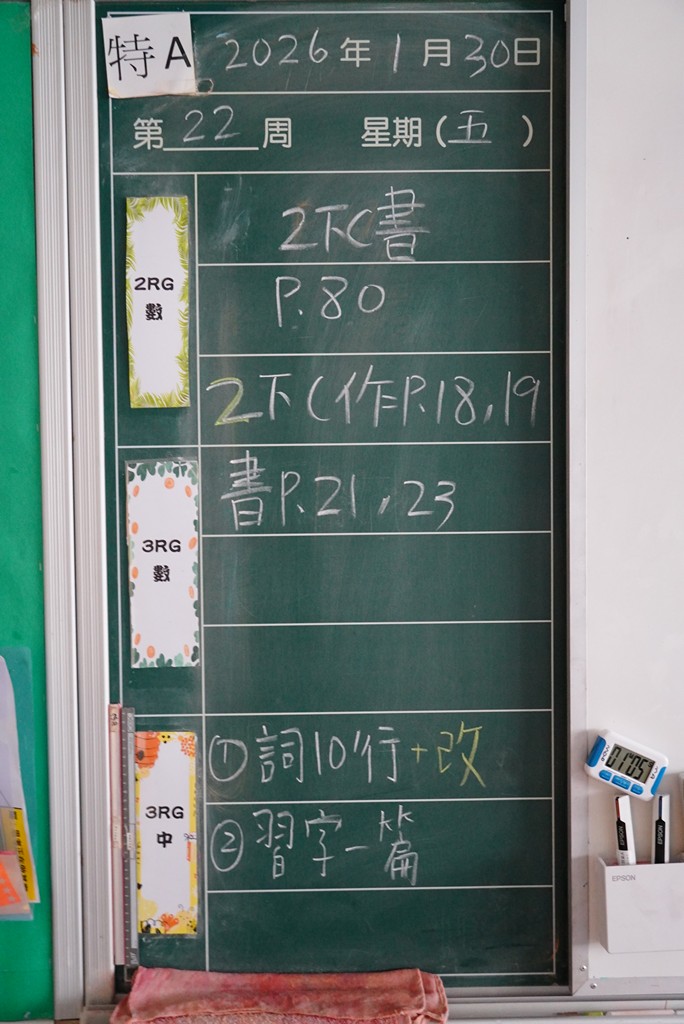 特A 2026年1月30日
第22周 星期(五)
2RG
數
2下C書
P.80
2下C作P.18,19
3RG
數
書P.21,23
3RG
中
①詞10行+改
②習字一篇
EPSON
EPSON
EPSON